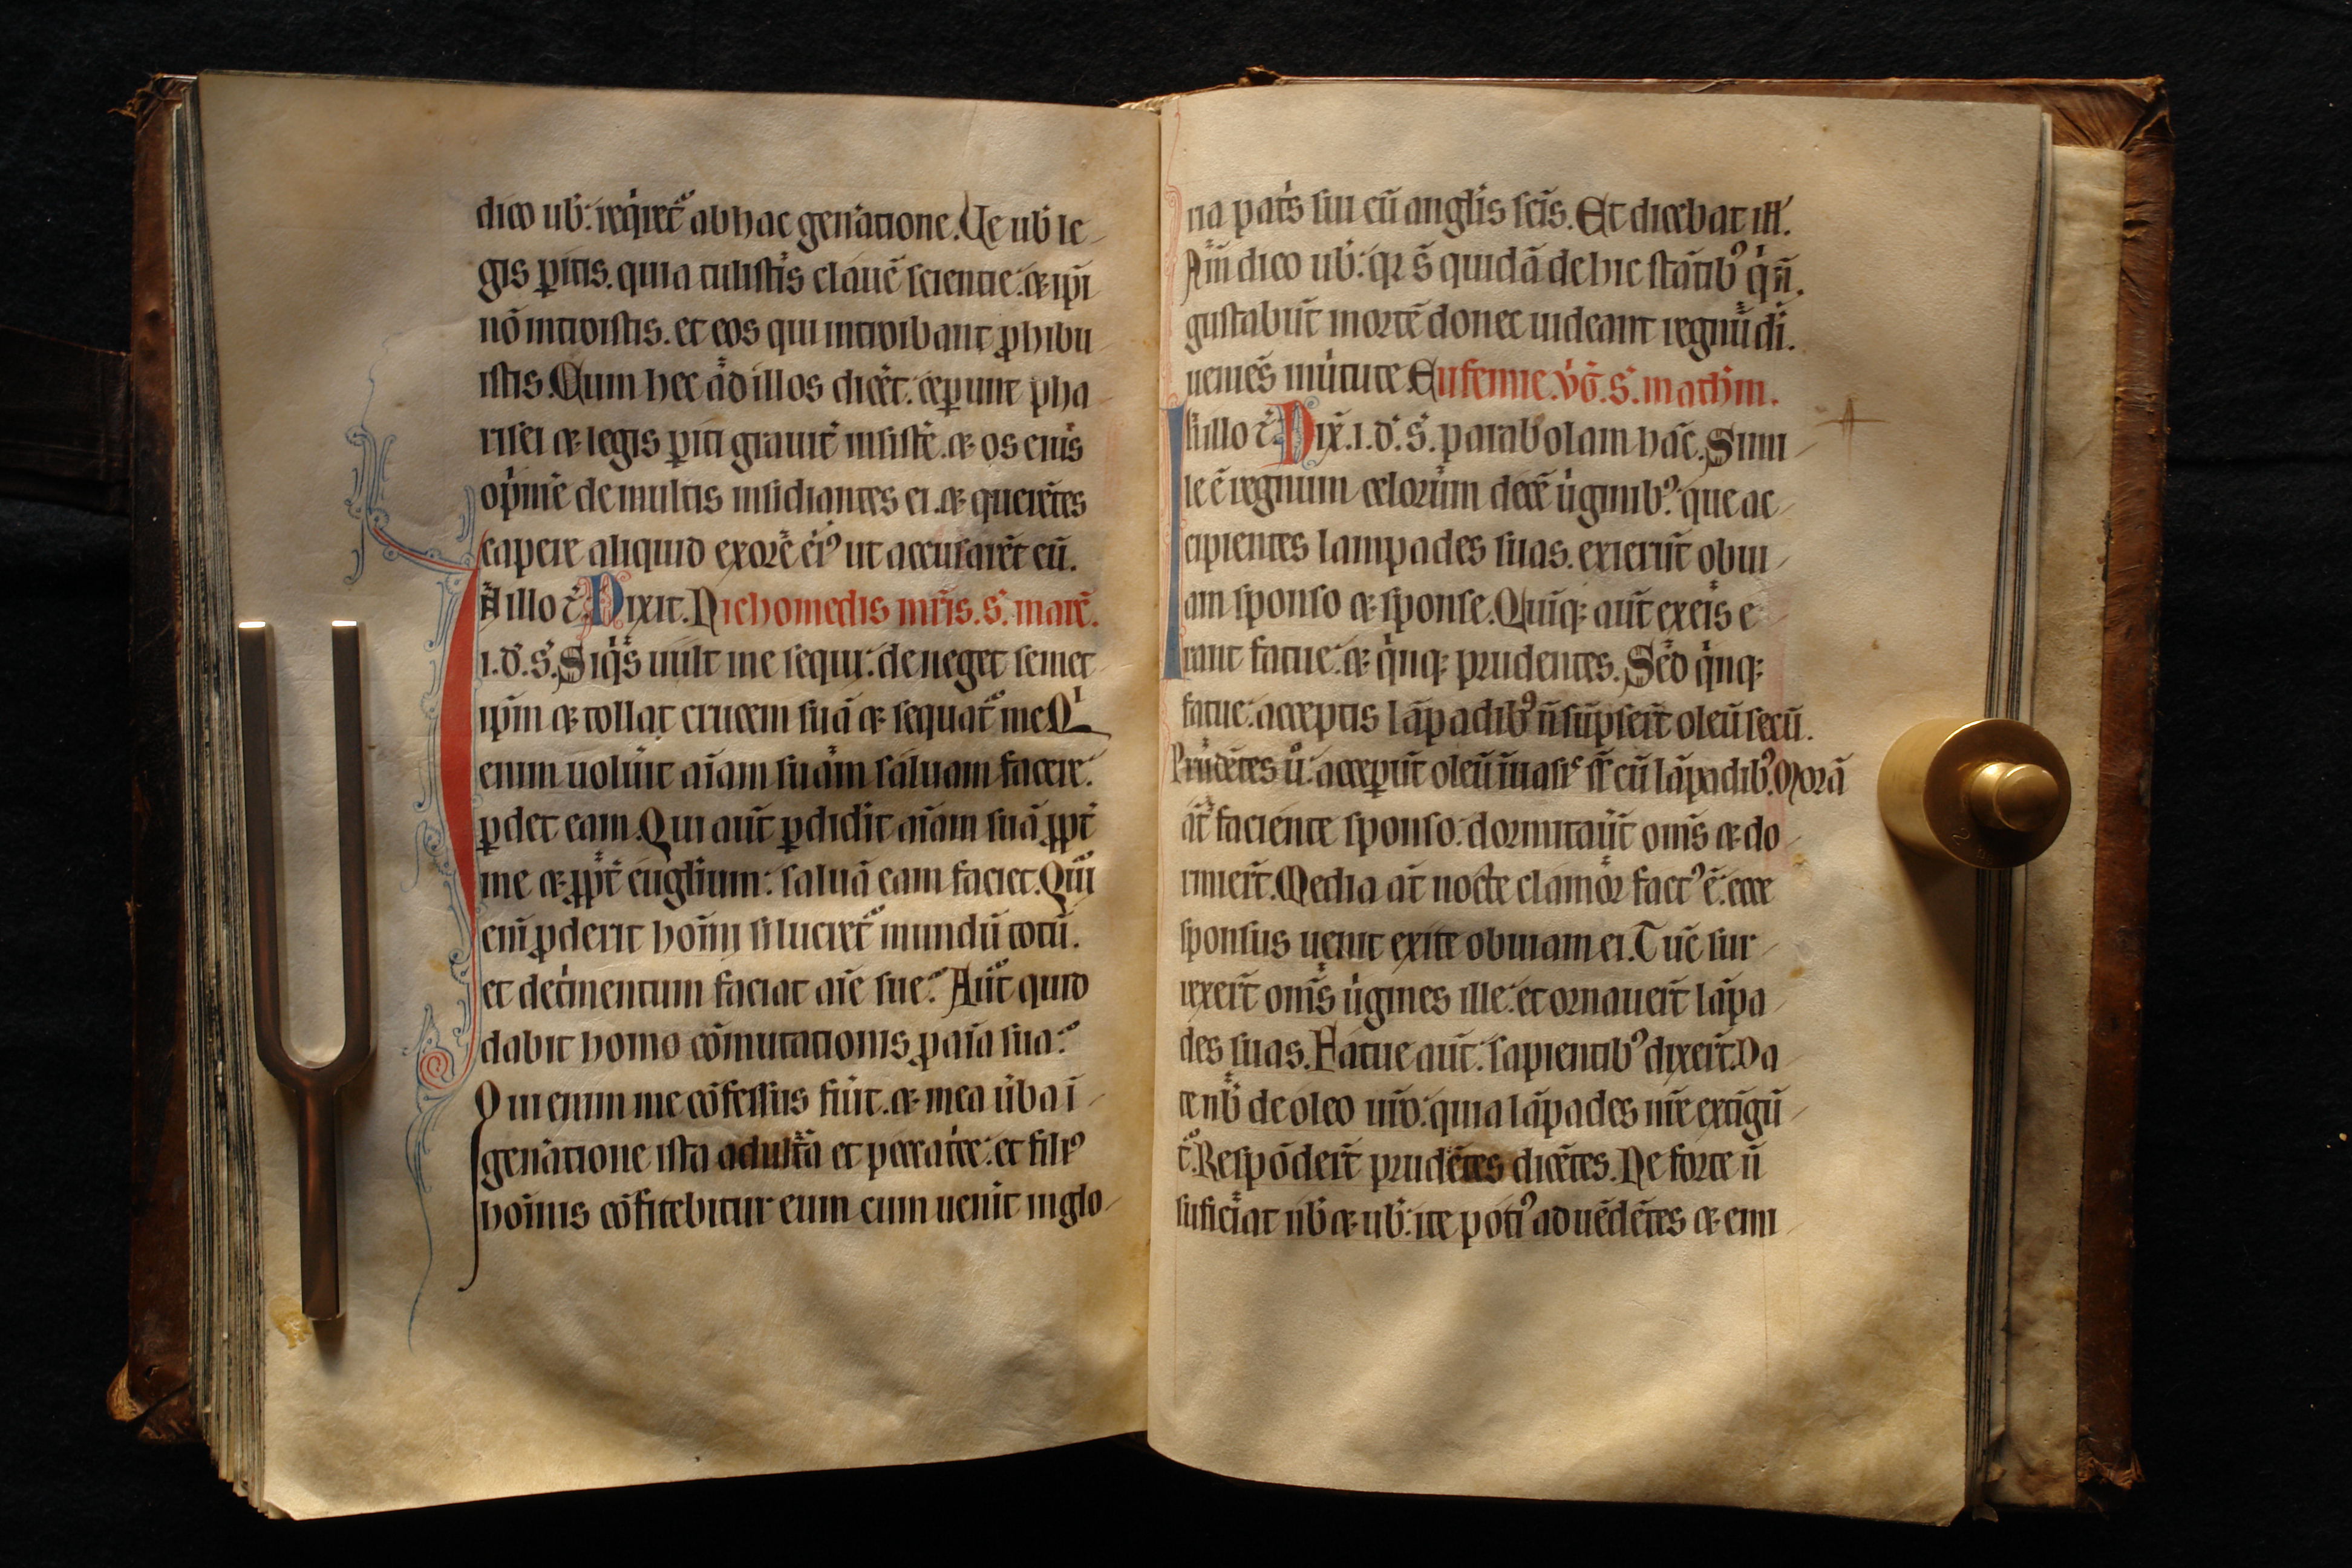 dico ub̄: req̇ret᷑ ab hac gen̄atione. Ue ub̄ le-
gis ꝑitis. quia tulistis clauē scientie: ⁊ ip̄i
nō introistis. et eos qui introibant ꝓhibu
istis. Cum hec ad illos dic̄et: ceperunt pha-
risei ⁊ legis ꝑiti grauit̄ insistē. ⁊ os eius
op̄im̄e de multis insidiantes ei. ⁊ querētes
capere aliquid ex ore ei᷒ ut accusarēt eū.
In illo t̄. Dixit. Nichomedis mr̄is. S. marc̄.
i. d̄. s̄. Siq̇s uult me sequi: deneget semet
ip̄m ⁊ tollat crucem suā ⁊ sequat᷑ me. Qⁱ
enim uolu̇it aīam suam saluam facere:
ꝑdet eam. Qui aūt ꝑdidit aīam suā ꝓpt̄
me ⁊ ꝓpt̄ euglium: saluā eam faciet. Qui
eni ꝓderit hoīni si lucret᷑ mundū totū.
et det̄mentum faciat aīe sue? Aūt quid
dabit homo cōmutationis, ꝓ aīa sua?
Qui enim me cōfessus fu̇it. ⁊ mea ūba ī
gen̄atione ista adult̄a et peccatce: et fili᷒
hoīnis cōfitebitur eum cum uen̄it in glo-
ria pat̄s sui cū anglis sc̄is. Et dicebat ill̄.
Am̄ dico ub̄: qr s̄ quidā de hic stātib᷒ q̇ n̄.
gustabūt mortē donec uideant regnū di.
uenies in u̇tute. Eufemie. v̄g. s̄. math̄m.
In illo t̄. Dix̄. i. d̄. s̄. parabolam hāc. Simi-
le ē regnum celorum decē u̇ginib᷒: que ac-
cipientes lampades suas. exierūt obui-
am sponso ⁊ sponse. Quiq; aūt ex eis e
rant fatue: ⁊ q̇nq; prudentes. Sed q̇nq;
fatue: acceptis lāpadib᷒ n̄ sūpser̄t oleū secū.
Prudētes ū: acceꝑūt oleū ī uasis suis cū lāpadib᷒. Morā
āt faciente sponso: dormitau̇t om̄s ⁊ do-
rmier̄t. Media āt nocte clamor fact᷒ ē: ecce
sponsus uenit exite obuiam ei. Tūc sur-
rexer̄t om̄s u̇gines ille: et ornauer̄t lāpa
des suas. Fatue aūt: sapientib᷒ dixer̄t. Da
te nb̄ de oleo ur̄o: quia lāpades nr̄e extīgū-
t᷑. Respōder̄t prudētes dicētes. Ne forte n̄
suficiat nb̄ ⁊ ub̄: ite poti᷒ ad uēdētes ⁊ emi-